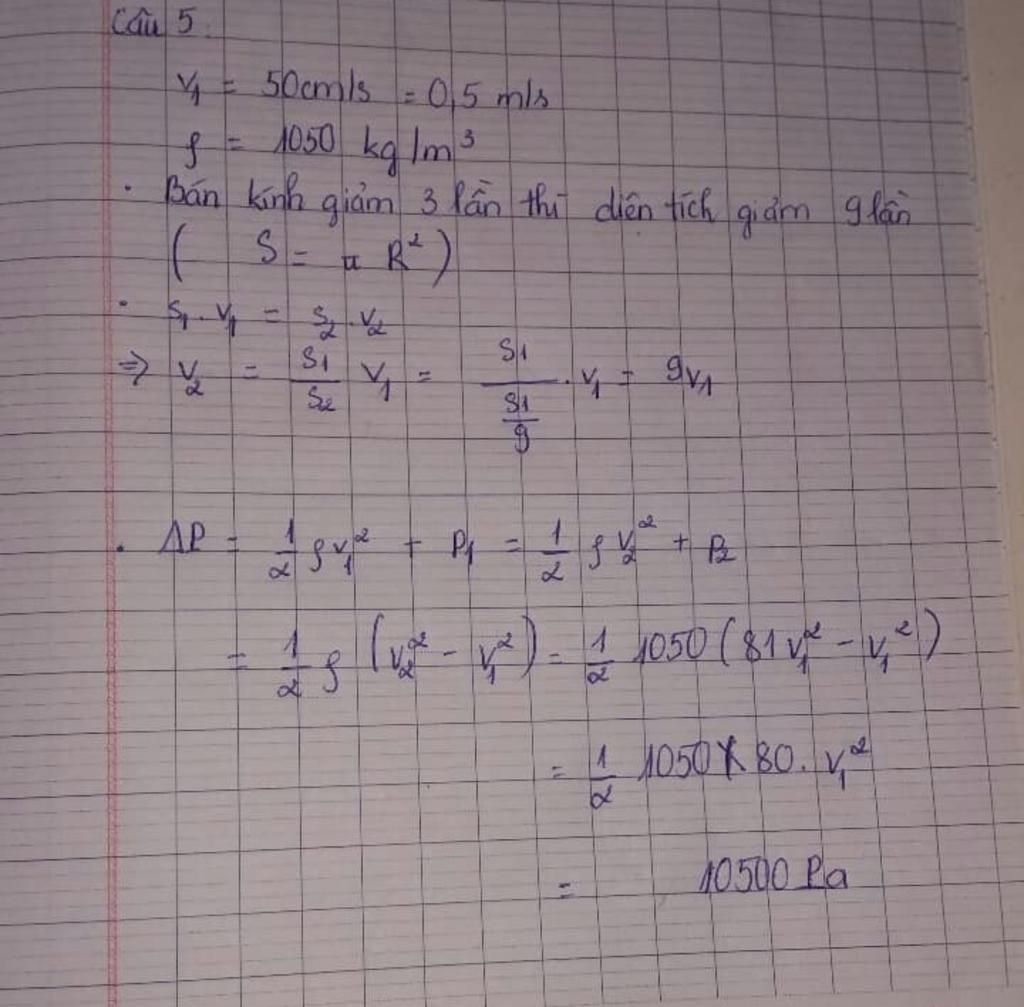 Câu 5.
v₁ = 50cm/s = 0,5 m/s
ρ = 1050 kg/m³
· Bán kính giảm 3 lần thì diện tích giảm 9 lần
( S = π R²)
· S₁.v₁ = S₂.v₂
⇒ v₂ = S₁/S₂ v₁ = S₁/(S₁/9) . v₁ = 9v₁
· ΔP = 1/2 ρv₁² + P₁ = 1/2 ρ v₂² + P₂
= 1/2 ρ (v₂² - v₁²) = 1/2 1050 (81v₁² - v₁²)
= 1/2 1050 x 80. v₁²
= 10500 Pa